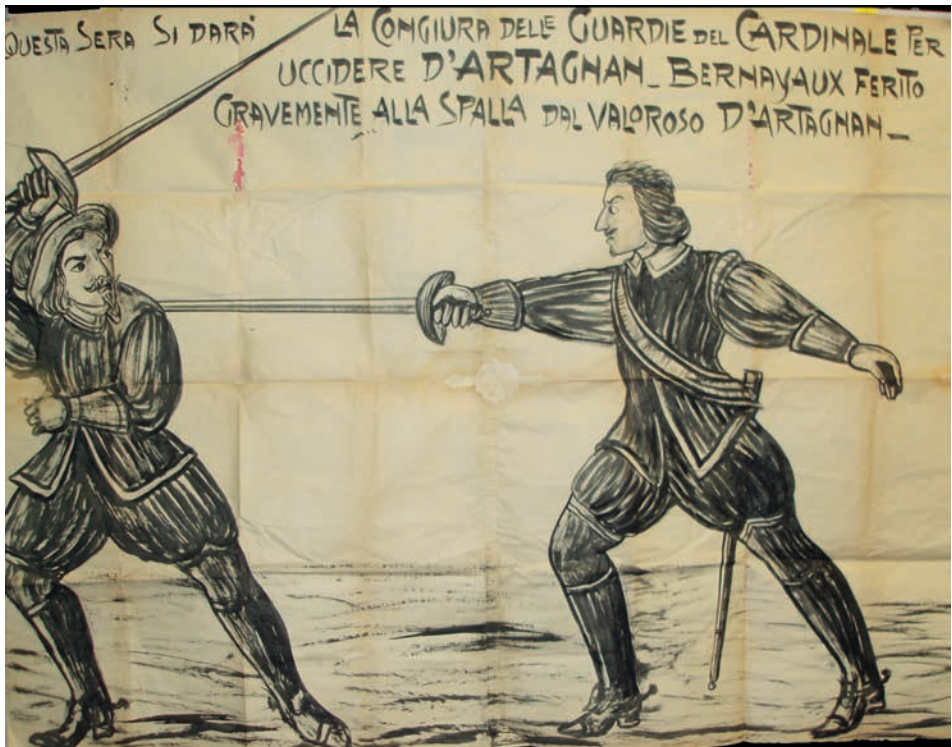 QUESTA SERA SI DARÀ LA CONGIURA DELLE GUARDIE DEL CARDINALE PER
UCCIDERE D'ARTAGNAN_ BERNAYAUX FERITO
GRAVEMENTE ALLA SPALLA DAL VALOROSO D'ARTAGNAN_